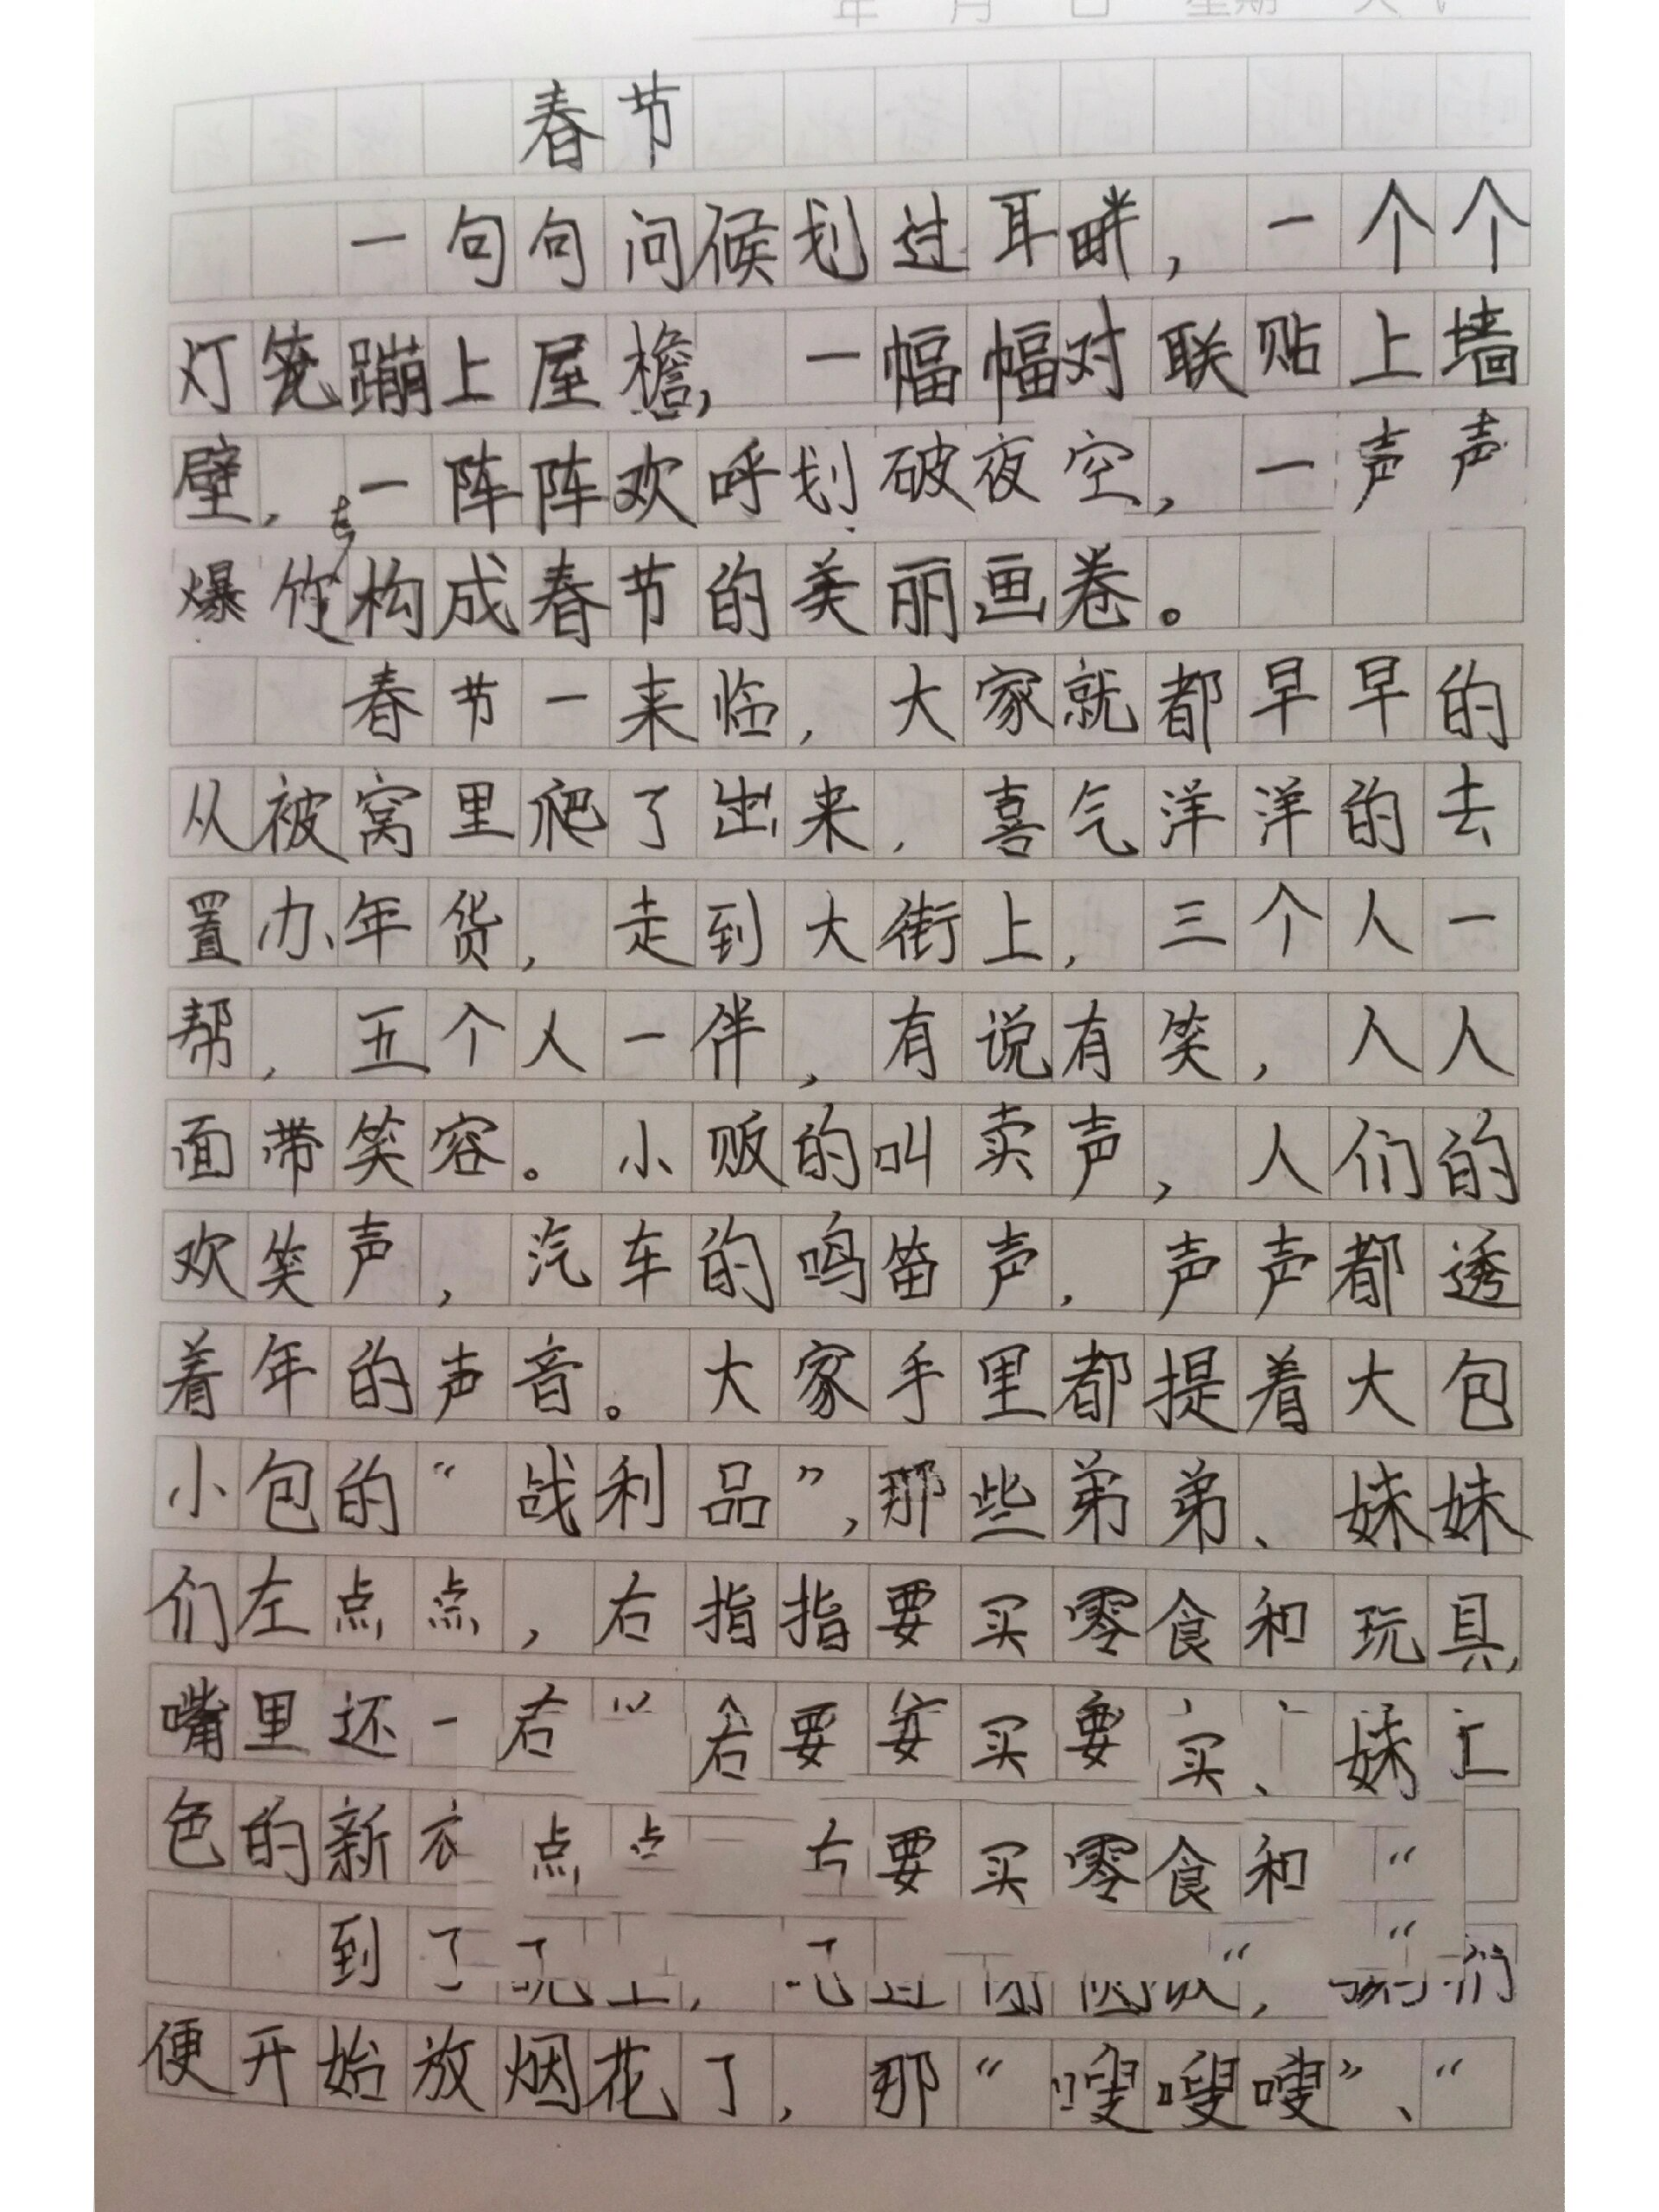 春节
一句句问候划过耳畔，一个个
灯笼蹦上屋檐，一幅幅对联贴上墙
壁，一阵阵欢呼划破夜空，一声声
爆竹构成春节的美丽画卷。
春节一来临，大家就都早早的
从被窝里爬了出来，喜气洋洋的去
置办年货，走到大街上，三个人一
帮，五个人一伴，有说有笑，人人
面带笑容。小贩的叫卖声，人们的
欢笑声，汽车的鸣笛声，声声都透
着年的声音。大家手里都提着大包
小包的“战利品”，那些弟弟、妹妹
们左点点，右指指要买零食和玩具，
嘴里还一右 右要 买要买、妹
色的新衣 点点 要买零食和“
到了
便开始放烟花了，那“嗖嗖嗖”、“